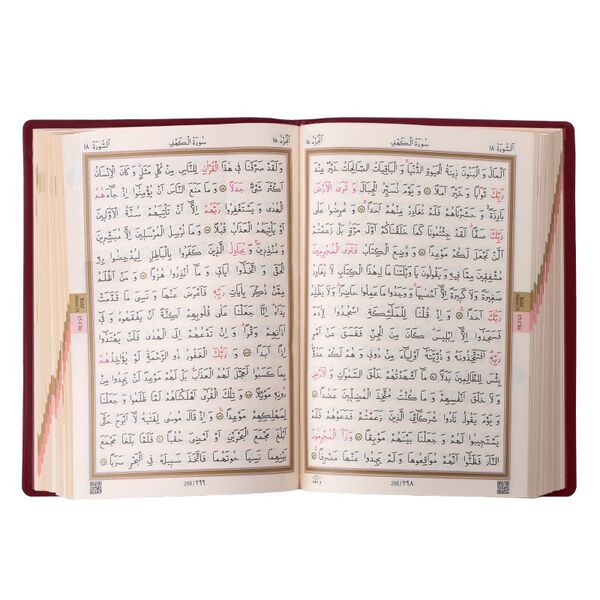 اَلسُّورَةُ ١٨
سُورَةُ الْكَهْفِ
اَلْجُزْءُ ١٥
اَلْمَالُ وَ الْبَنُونَ زِينَةُ الْحَيٰوةِ الدُّنْيَا وَ الْبَاقِيَاتُ الصَّالِحَاتُ خَيْرٌ عِنْدَ
رَبِّكَ ثَوَابًا وَ خَيْرٌ اَمَلًا ۝ وَ يَوْمَ نُسَيِّرُ الْجِبَالَ وَ تَرَى الْاَرْضَ
بَارِزَةً وَ حَشَرْنَاهُمْ فَلَمْ نُغَادِرْ مِنْهُمْ اَحَدًا ۝ وَ عُرِضُوا عَلٰى
رَبِّكَ صَفًّا لَقَدْ جِئْتُمُونَا كَمَا خَلَقْنَاكُمْ اَوَّلَ مَرَّةٍ بَلْ زَعَمْتُمْ اَلَّنْ
نَجْعَلَ لَكُمْ مَوْعِدًا ۝ وَ وُضِعَ الْكِتَابُ فَتَرَى الْمُجْرِمِينَ
مُشْفِقِينَ مِمَّا فِيهِ وَ يَقُولُونَ يَا وَيْلَتَنَا مَالِ هٰذَا الْكِتَابِ لَا يُغَادِرُ
صَغِيرَةً وَ لَا كَبِيرَةً اِلَّا اَحْصٰيهَا وَ وَجَدُوا مَا عَمِلُوا حَاضِرًا وَ لَا يَظْلِمُ
رَبُّكَ اَحَدًا ۝ وَ اِذْ قُلْنَا لِلْمَلٰٓئِكَةِ اسْجُدُوا لِاٰدَمَ
فَسَجَدُوا اِلَّا اِبْلِيسَ كَانَ مِنَ الْجِنِّ فَفَسَقَ عَنْ اَمْرِ
رَبِّهِ اَفَتَتَّخِذُونَهُ وَ ذُرِّيَّتَهُ اَوْلِيَاءَ مِنْ دُونِي وَ هُمْ لَكُمْ عَدُوٌّ
بِئْسَ لِلظَّالِمِينَ بَدَلًا ۝ مَا اَشْهَدْتُهُمْ خَلْقَ السَّمٰوَاتِ وَ الْاَرْضِ
وَ لَا خَلْقَ اَنْفُسِهِمْ وَ مَا كُنْتُ مُتَّخِذَ الْمُضِلِّينَ عَضُدًا ۝
وَ يَوْمَ يَقُولُ نَادُوا شُرَكَائِيَ الَّذِينَ زَعَمْتُمْ فَدَعَوْهُمْ فَلَمْ
يَسْتَجِيبُوا لَهُمْ وَ جَعَلْنَا بَيْنَهُمْ مَوْبِقًا ۝ وَ رَاَ الْمُجْرِمُونَ
النَّارَ فَظَنُّوا اَنَّهُمْ مُوَاقِعُوهَا وَ لَمْ يَجِدُوا عَنْهَا مَصْرِفًا ۝
298/٢٩٨
وَ لَقَدْ
اَلْجُزْءُ ١٥
سُورَةُ الْكَهْفِ
اَلسُّورَةُ ١٨
وَ لَقَدْ صَرَّفْنَا فِي هٰذَا الْقُرْاٰنِ لِلنَّاسِ مِنْ كُلِّ مَثَلٍ وَ كَانَ الْاِنْسَانُ
اَكْثَرَ شَيْءٍ جَدَلًا ۝ وَ مَا مَنَعَ النَّاسَ اَنْ يُؤْمِنُوا اِذْ جَاءَهُمُ
الْهُدٰى وَ يَسْتَغْفِرُوا رَبَّهُمْ اِلَّا اَنْ تَأْتِيَهُمْ سُنَّةُ الْاَوَّلِينَ
اَوْ يَأْتِيَهُمُ الْعَذَابُ قُبُلًا ۝ وَ مَا نُرْسِلُ الْمُرْسَلِينَ اِلَّا مُبَشِّرِينَ
وَ مُنْذِرِينَ وَ يُجَادِلُ الَّذِينَ كَفَرُوا بِالْبَاطِلِ لِيُدْحِضُوا بِهِ
الْحَقَّ وَ اتَّخَذُوا اٰيَاتِي وَ مَا اُنْذِرُوا هُزُوًا ۝ وَ مَنْ اَظْلَمُ
مِمَّنْ ذُكِّرَ بِاٰيَاتِ رَبِّهِ فَاَعْرَضَ عَنْهَا وَ نَسِيَ مَا قَدَّمَتْ
يَدَاهُ اِنَّا جَعَلْنَا عَلٰى قُلُوبِهِمْ اَكِنَّةً اَنْ يَفْقَهُوهُ وَ فِي
اٰذَانِهِمْ وَقْرًا وَ اِنْ تَدْعُهُمْ اِلَى الْهُدٰى فَلَنْ يَهْتَدُوا
اِذًا اَبَدًا ۝ وَ رَبُّكَ الْغَفُورُ ذُو الرَّحْمَةِ لَوْ يُؤَاخِذُهُمْ
بِمَا كَسَبُوا لَعَجَّلَ لَهُمُ الْعَذَابَ بَلْ لَهُمْ مَوْعِدٌ لَنْ يَجِدُوا مِنْ
دُونِهِ مَوْئِلًا ۝ وَ تِلْكَ الْقُرٰى اَهْلَكْنَاهُمْ لَمَّا ظَلَمُوا وَ جَعَلْنَا
لِمَهْلِكِهِمْ مَوْعِدًا ۝ وَ اِذْ قَالَ مُوسٰى لِفَتٰيهُ لَا اَبْرَحُ حَتّٰى
اَبْلُغَ مَجْمَعَ الْبَحْرَيْنِ اَوْ اَمْضِيَ حُقُبًا ۝ فَلَمَّا بَلَغَا مَجْمَعَ
بَيْنِهِمَا نَسِيَا حُوتَهُمَا فَاتَّخَذَ سَبِيلَهُ فِي الْبَحْرِ سَرَبًا ۝
299/٢٩٩
Kehf
15.Cüz
Kehf
15.Cüz